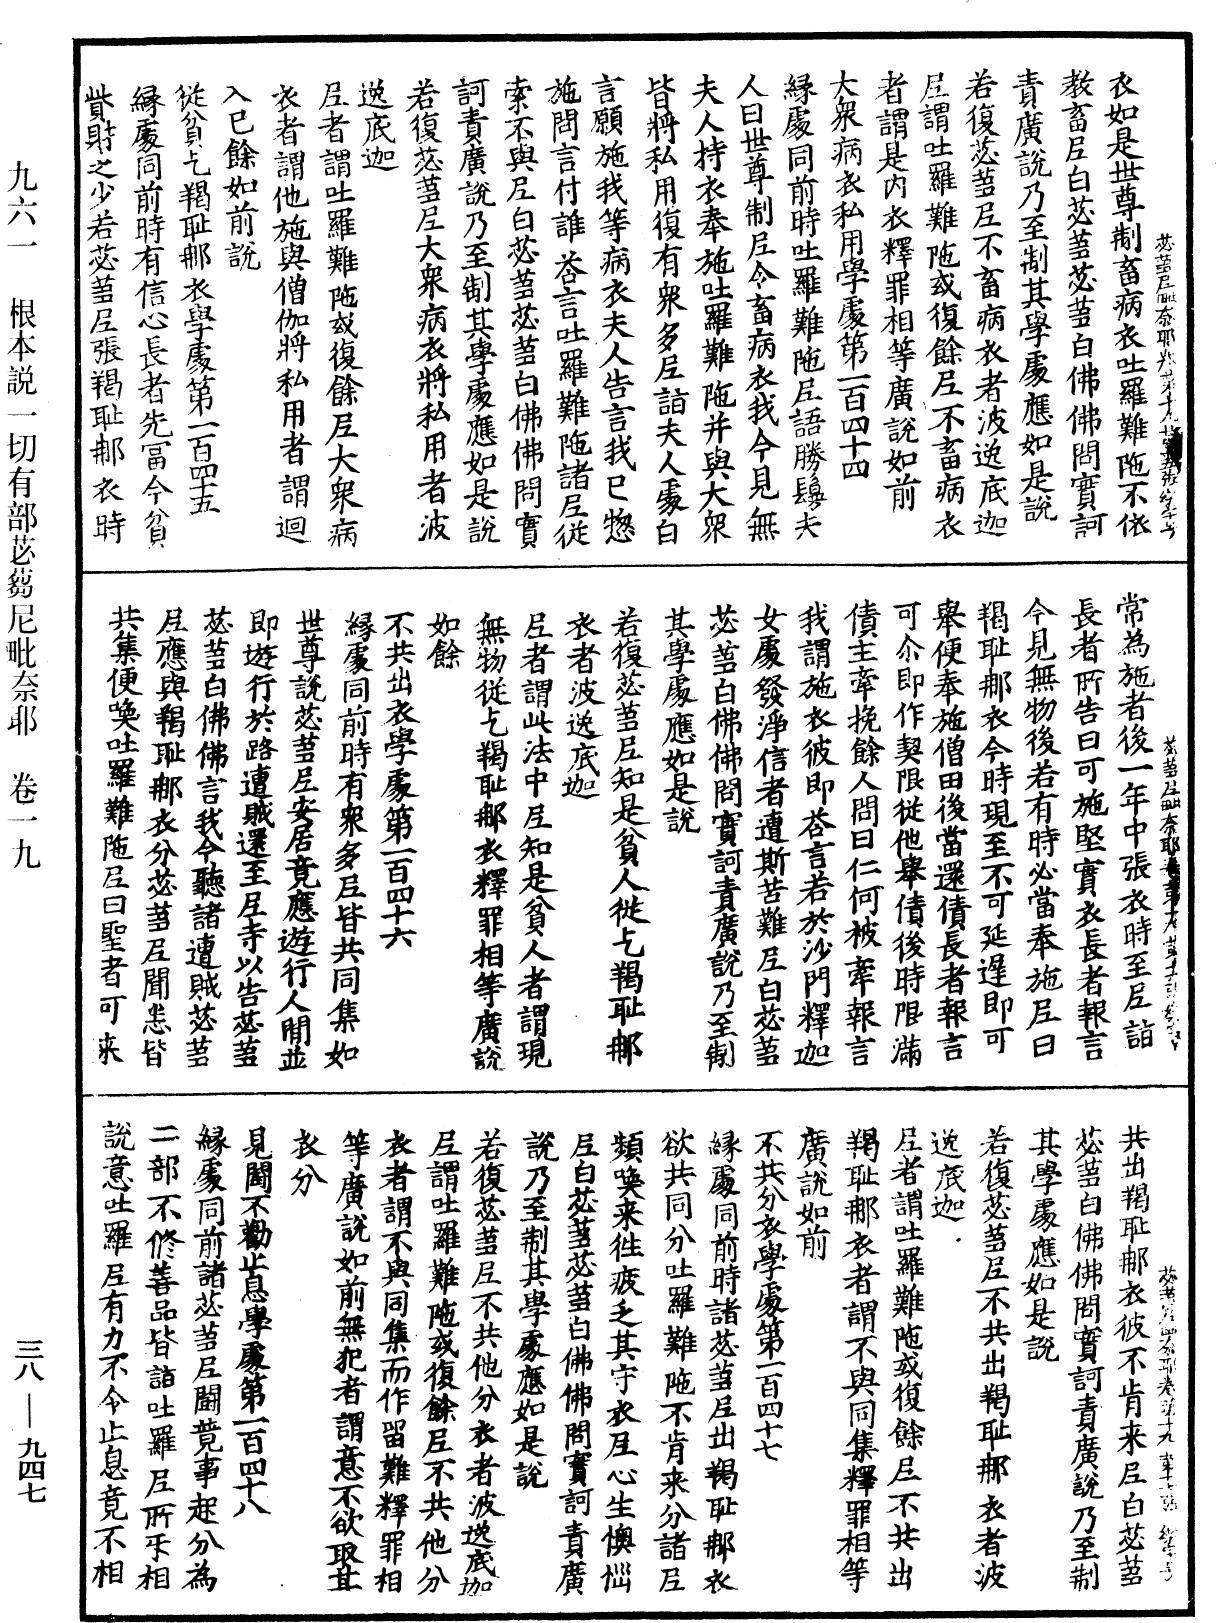 衣如是世尊制畜病衣吐羅難陁不依
教畜𡰱白苾蒭苾蒭白佛佛問實訶
責廣說乃至制其學處應如是說
若復苾蒭𡰱不畜病衣者波逸底迦
𡰱謂吐羅難陁或復餘𡰱不畜病衣
者謂是内衣釋罪相等廣說如前
大衆病衣私用學處第一百四十四
縁處同前時吐羅難陁𡰱語勝鬘夫
人曰世尊制𡰱令畜病衣我今見無
夫人持衣奉施吐羅難陁并與大衆
皆將私用復有衆多𡰱詣夫人處白
言願施我等病衣夫人告言我已惣
施問言付誰荅言吐羅難陁諸𡰱從
索不與𡰱白苾蒭苾蒭白佛佛問實
訶責廣說乃至制其學處應如是說
若復苾蒭𡰱大衆病衣將私用者波
逸底迦
𡰱者謂吐羅難陁或復餘𡰱大衆病
衣者謂他施與僧伽將私用者謂迴
入已餘如前說
從貧乞羯耻那衣學處第一百四十五
縁處同前時有信心長者先冨今貧
貲財之少若苾蒭𡰱張羯耻那衣時
常為施者後一年中張衣時至𡰱詣
長者所告曰可施堅實衣長者報言
今見無物後若有時必當奉施𡰱曰
羯耻那衣今時現至不可延遲即可
舉便奉施僧田後當還債長者報言
可尒即作契限從他舉債後時限滿
債主牽挽餘人問曰仁何被牽報言
我謂施衣彼即荅言若於沙門釋迦
女處發淨信者遭斯苦難𡰱白苾蒭
苾蒭白佛佛問實訶責廣說乃至制
其學處應如是說
若復苾蒭𡰱知是貧人從乞羯耻那
衣者波逸底迦
𡰱者謂此法中𡰱知是貧人者謂現
無物從乞羯耻那衣釋罪相等廣說
如餘
不共出衣學處第一百四十六
縁處同前時有衆多𡰱皆共同集如
世尊說苾蒭𡰱安居竟應遊行人間並
即遊行於路遭賊還至𡰱寺以告苾蒭
苾蒭白佛佛言我今聽諸遭賊苾蒭
𡰱應與羯耻那衣分苾蒭𡰱聞悉皆
共集便喚吐羅難陁𡰱曰聖者可來
共出羯耻那衣彼不肯来𡰱白苾蒭
苾蒭白佛佛問實訶責廣說乃至制
其學處應如是說
若復苾蒭𡰱不共出羯耻那衣者波
逸底迦
𡰱者謂吐羅難陁或復餘𡰱不共出
羯耻那衣者謂不與同集釋罪相等
廣說如前
不共分衣學處第一百四十七
縁處同前時諸苾蒭𡰱出羯耻那衣
欲共同分吐羅難陁不肯来分諸𡰱
頻喚来徃疲乏其守衣𡰱心生懊惱
𡰱白苾蒭苾蒭白佛佛問實訶責廣
說乃至制其學處應如是說
若復苾蒭𡰱不共他分衣者波逸底迦
𡰱謂吐羅難陁或復餘𡰱不共他分
衣者謂不與同集而作留難釋罪相
等廣說如前無犯者謂意不欲取其
衣分
見鬪不勸止息學處第一百四十八
縁處同前諸苾蒭𡰱鬪競事起分為
二部不修善品皆詣吐羅𡰱所求相
說意吐羅𡰱有力不令止息竟不相
九六一　根本説一切有部苾蒭尼毗奈耶　卷一九
三八—九四七